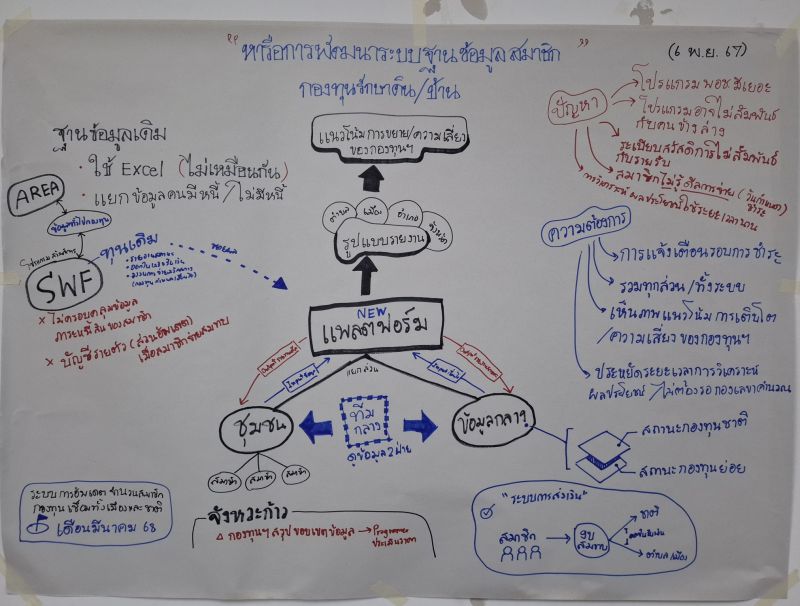 "หารือการพัฒนาระบบฐานข้อมูลสมาชิก"
กองทุนรักษาดิน/บ้าน
(6 พ.ย. 67)
ฐานข้อมูลเดิม
• ใช้ Excel (ไม่เหมือนกัน)
• แยกข้อมูลคนมีหนี้/ไม่มีหนี้
AREA
SWF
ทุนเดิม
× ไม่ครอบคลุมข้อมูล
ภาระหนี้สินของสมาชิก
× บัญชีรายตัว (ส่วนอัพเดต)
เมื่อสมาชิกจ่ายสมทบ
แนวโน้มการขยาย/ความเสี่ยง
ของกองทุนฯ
ตำบล
เมือง
อำเภอ
จังหวัด
รูปแบบรายงาน
NEW
แพลตฟอร์ม
แยกส่วน
ชุมชน
ทีม
กลาง
ดูข้อมูล 2 ฝ่าย
ข้อมูลกลาง
สมาชิก
สมาชิก
สมาชิก
สถานะกองทุนชาติ
สถานะกองทุนย่อย
ปัญหา
โปรแกรม พอช มีเยอะ
โปรแกรมอาจไม่สัมพันธ์
กับคนข้างล่าง
ระเบียบสวัสดิการไม่สัมพันธ์
กับรายรับ
สมาชิกไม่รู้ดีลการจ่าย
ความต้องการ
การแจ้งเตือนรอบการชำระ
รวมทุกส่วน/ทั้งระบบ
เห็นภาพแนวโน้มการเติบโต
/ความเสี่ยงของกองทุนฯ
ประหยัดระยะเวลาการวิเคราะห์
ผลประโยชน์/ไม่ต้องรอกองเลขาคำนวณ
ระบบการอัพเดตจำนวนสมาชิก
กองทุนเชื่อมทั้งเมืองและชาติ
เดือนมีนาคม 68
จังหวะก้าว
△ กองทุนฯ สรุปขอบเขตข้อมูล → Programmer
ประเมินราคา
"ระบบการส่งเงิน"
สมาชิก
งบ
สมทบ
ชาติ
ตำบล/เมือง